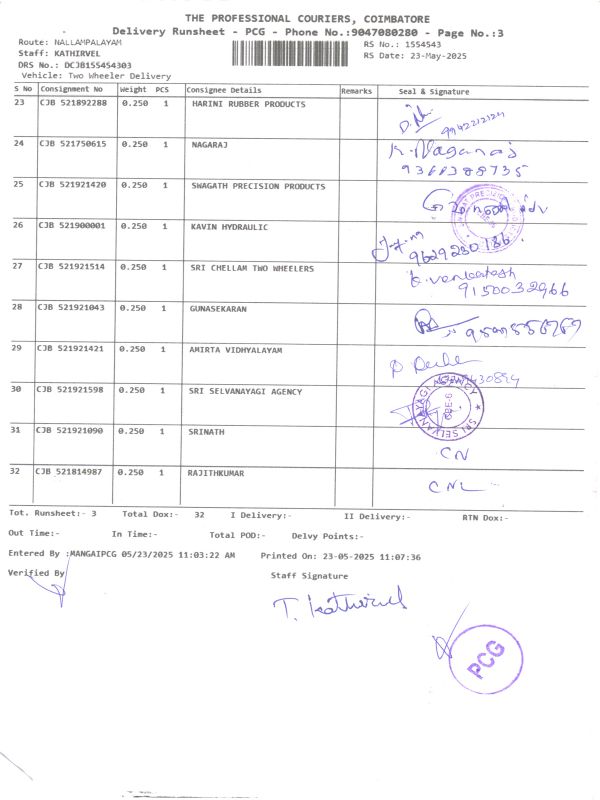 THE PROFESSIONAL COURIERS, COIMBATORE
Delivery Runsheet - PCG - Phone No.:9047080280 - Page No.:3
Route: NALLAMPALAYAM RS No.: 1554543
Staff: KATHIRVEL RS Date: 23-May-2025
DRS No.: DCJB155454303
Vehicle: Two Wheeler Delivery
S No Consignment No Weight PCS Consignee Details Remarks Seal & Signature
23 CJB 521892288 0.250 1 HARINI RUBBER PRODUCTS
24 CJB 521750615 0.250 1 NAGARAJ K. Nagaraj
9360388735
25 CJB 521921420 0.250 1 SWAGATH PRECISION PRODUCTS
26 CJB 521900001 0.250 1 KAVIN HYDRAULIC
9629230136
27 CJB 521921514 0.250 1 SRI CHELLAM TWO WHEELERS K. venkatesh
9150032966
28 CJB 521921043 0.250 1 GUNASEKARAN
29 CJB 521921421 0.250 1 AMIRTA VIDHYALAYAM
30 CJB 521921598 0.250 1 SRI SELVANAYAGI AGENCY SRI SELVANAYAGI AGENCY CBE-6
31 CJB 521921090 0.250 1 SRINATH CN
32 CJB 521814987 0.250 1 RAJITHKUMAR CNL
Tot. Runsheet:- 3 Total Dox:- 32 I Delivery:- II Delivery:- RTN Dox:-
Out Time:- In Time:- Total POD:- Delvy Points:-
Entered By :MANGAIPCG 05/23/2025 11:03:22 AM Printed On: 23-05-2025 11:07:36
Verified By Staff Signature
T. Kathirvel
PCG